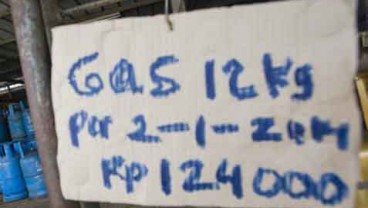 GAS 12 Kg
Per 2-1-2014
Rp 124000